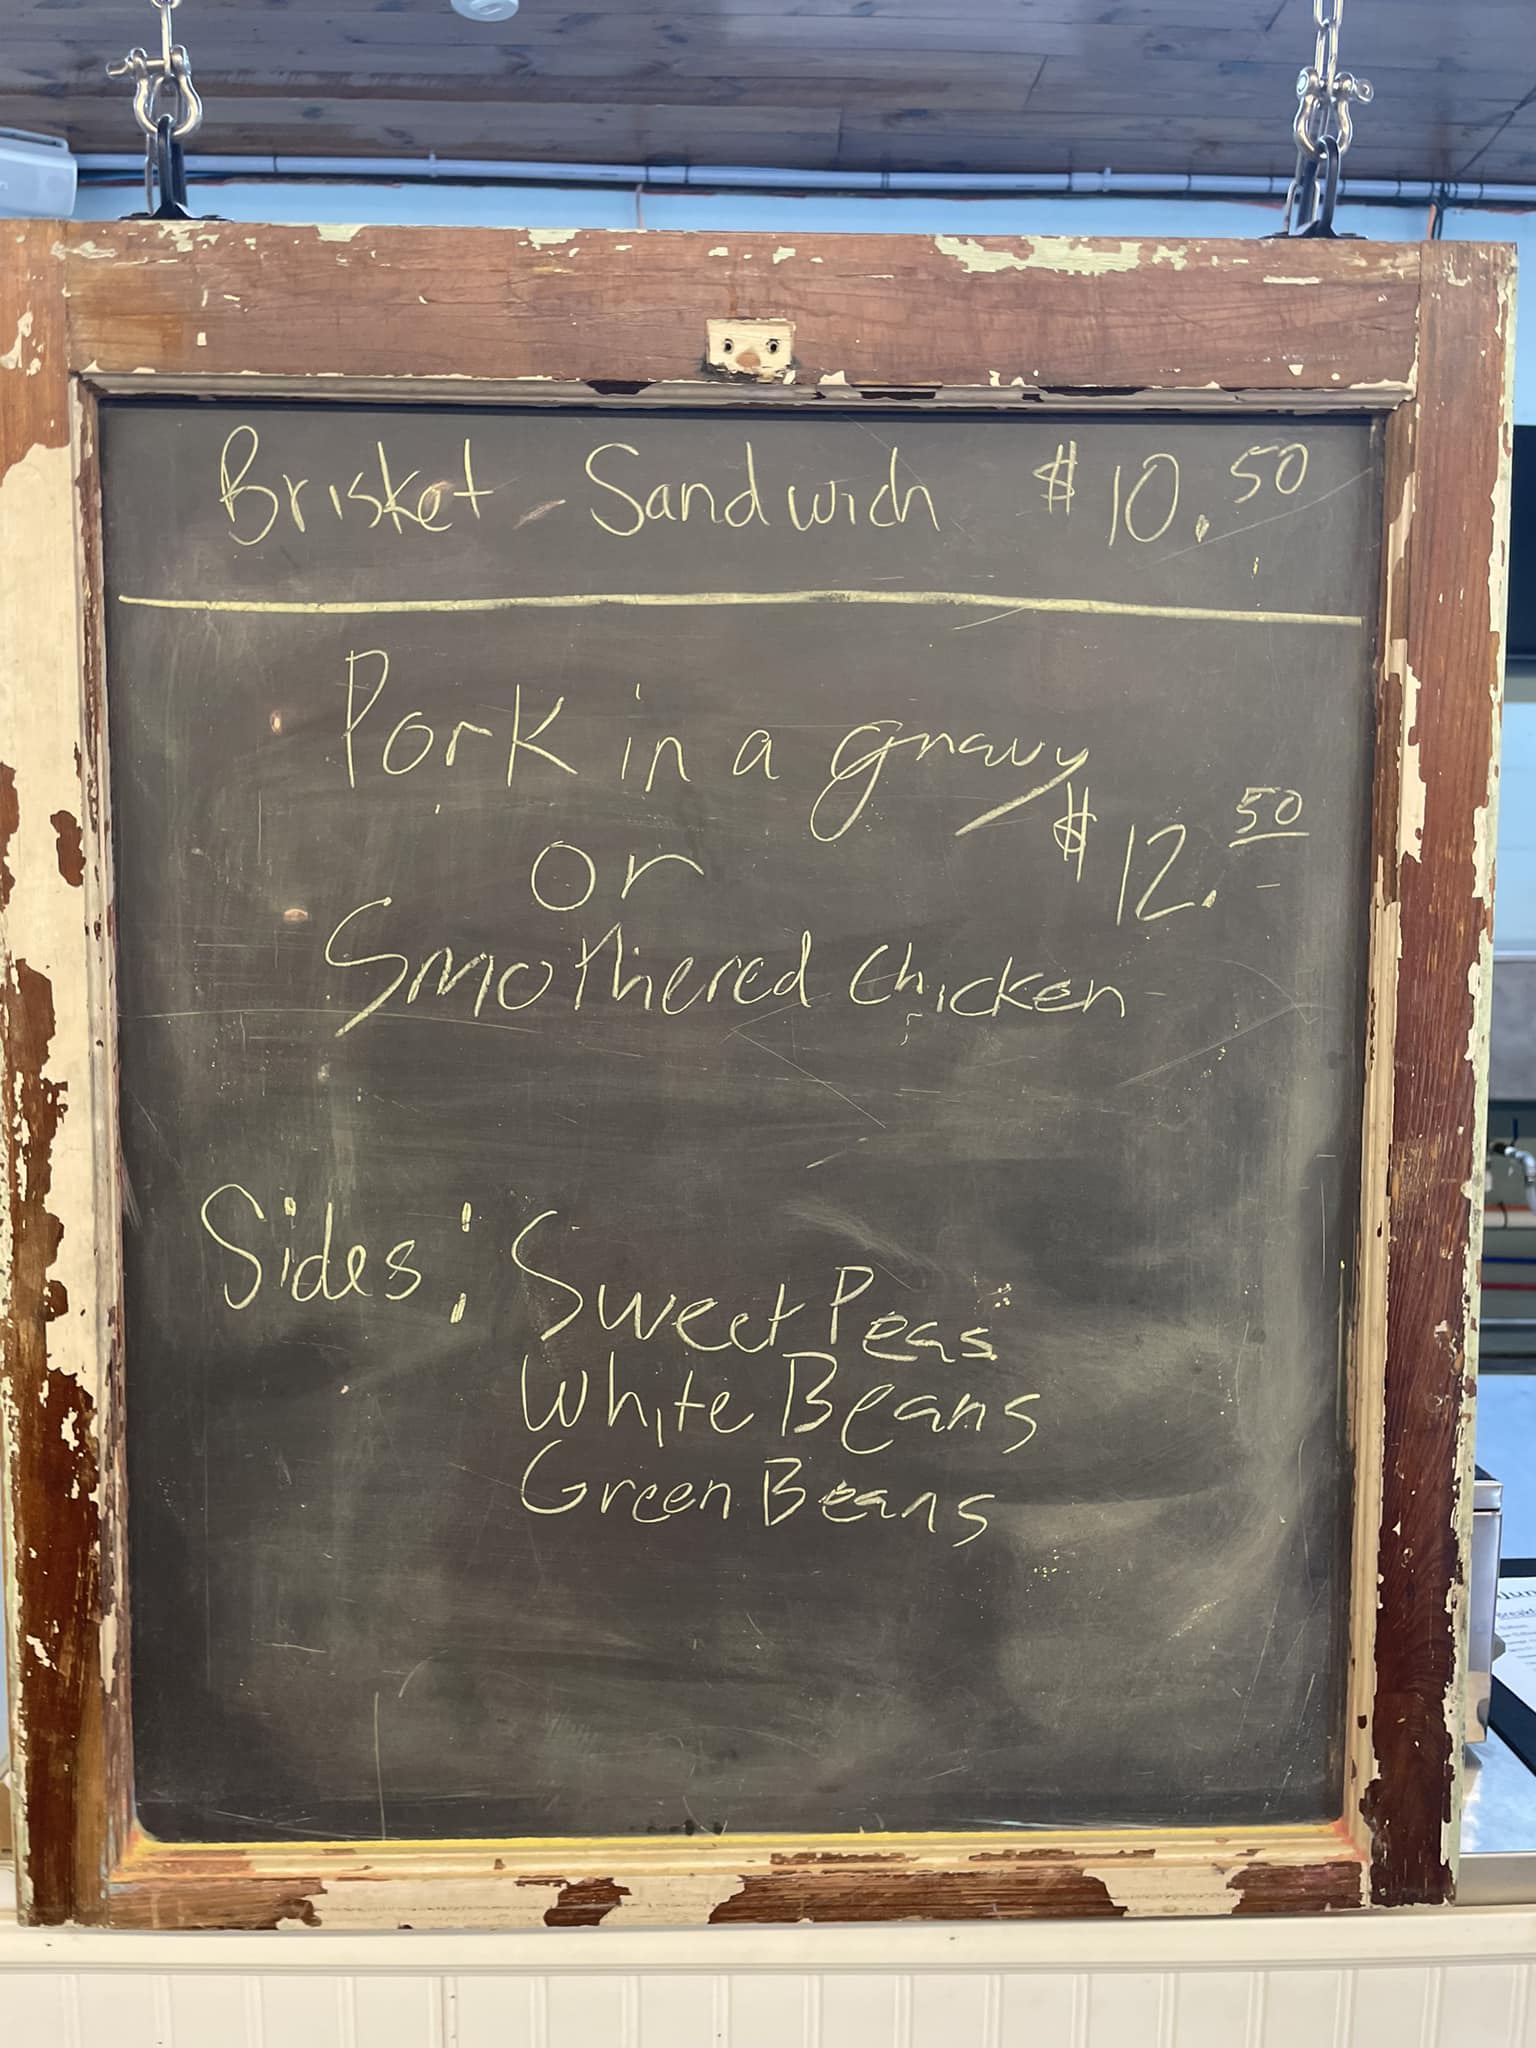 Brisket - Sandwich $10.50
Pork in a gravy
$12.50
or
Smothered Chicken
Sides: Sweet Peas
White Beans
Green Beans